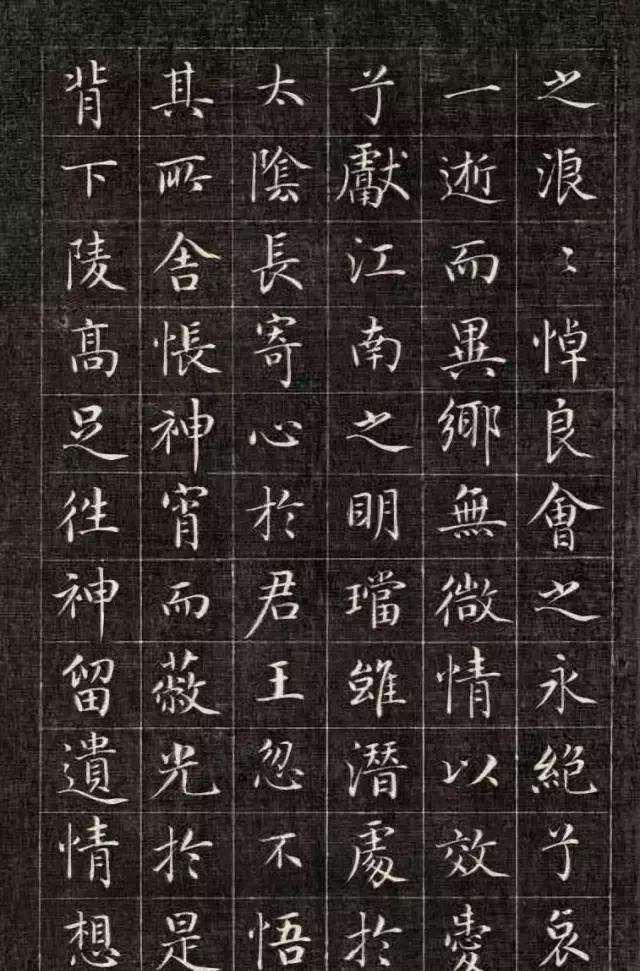 之浪〻悼良會之永絕兮哀
一逝而異鄉無微情以效愛
兮獻江南之明璫雖潛處於
太陰長寄心於君王忽不悟
其所舍悵神宵而蔽光於是
背下陵髙足往神留遺情想